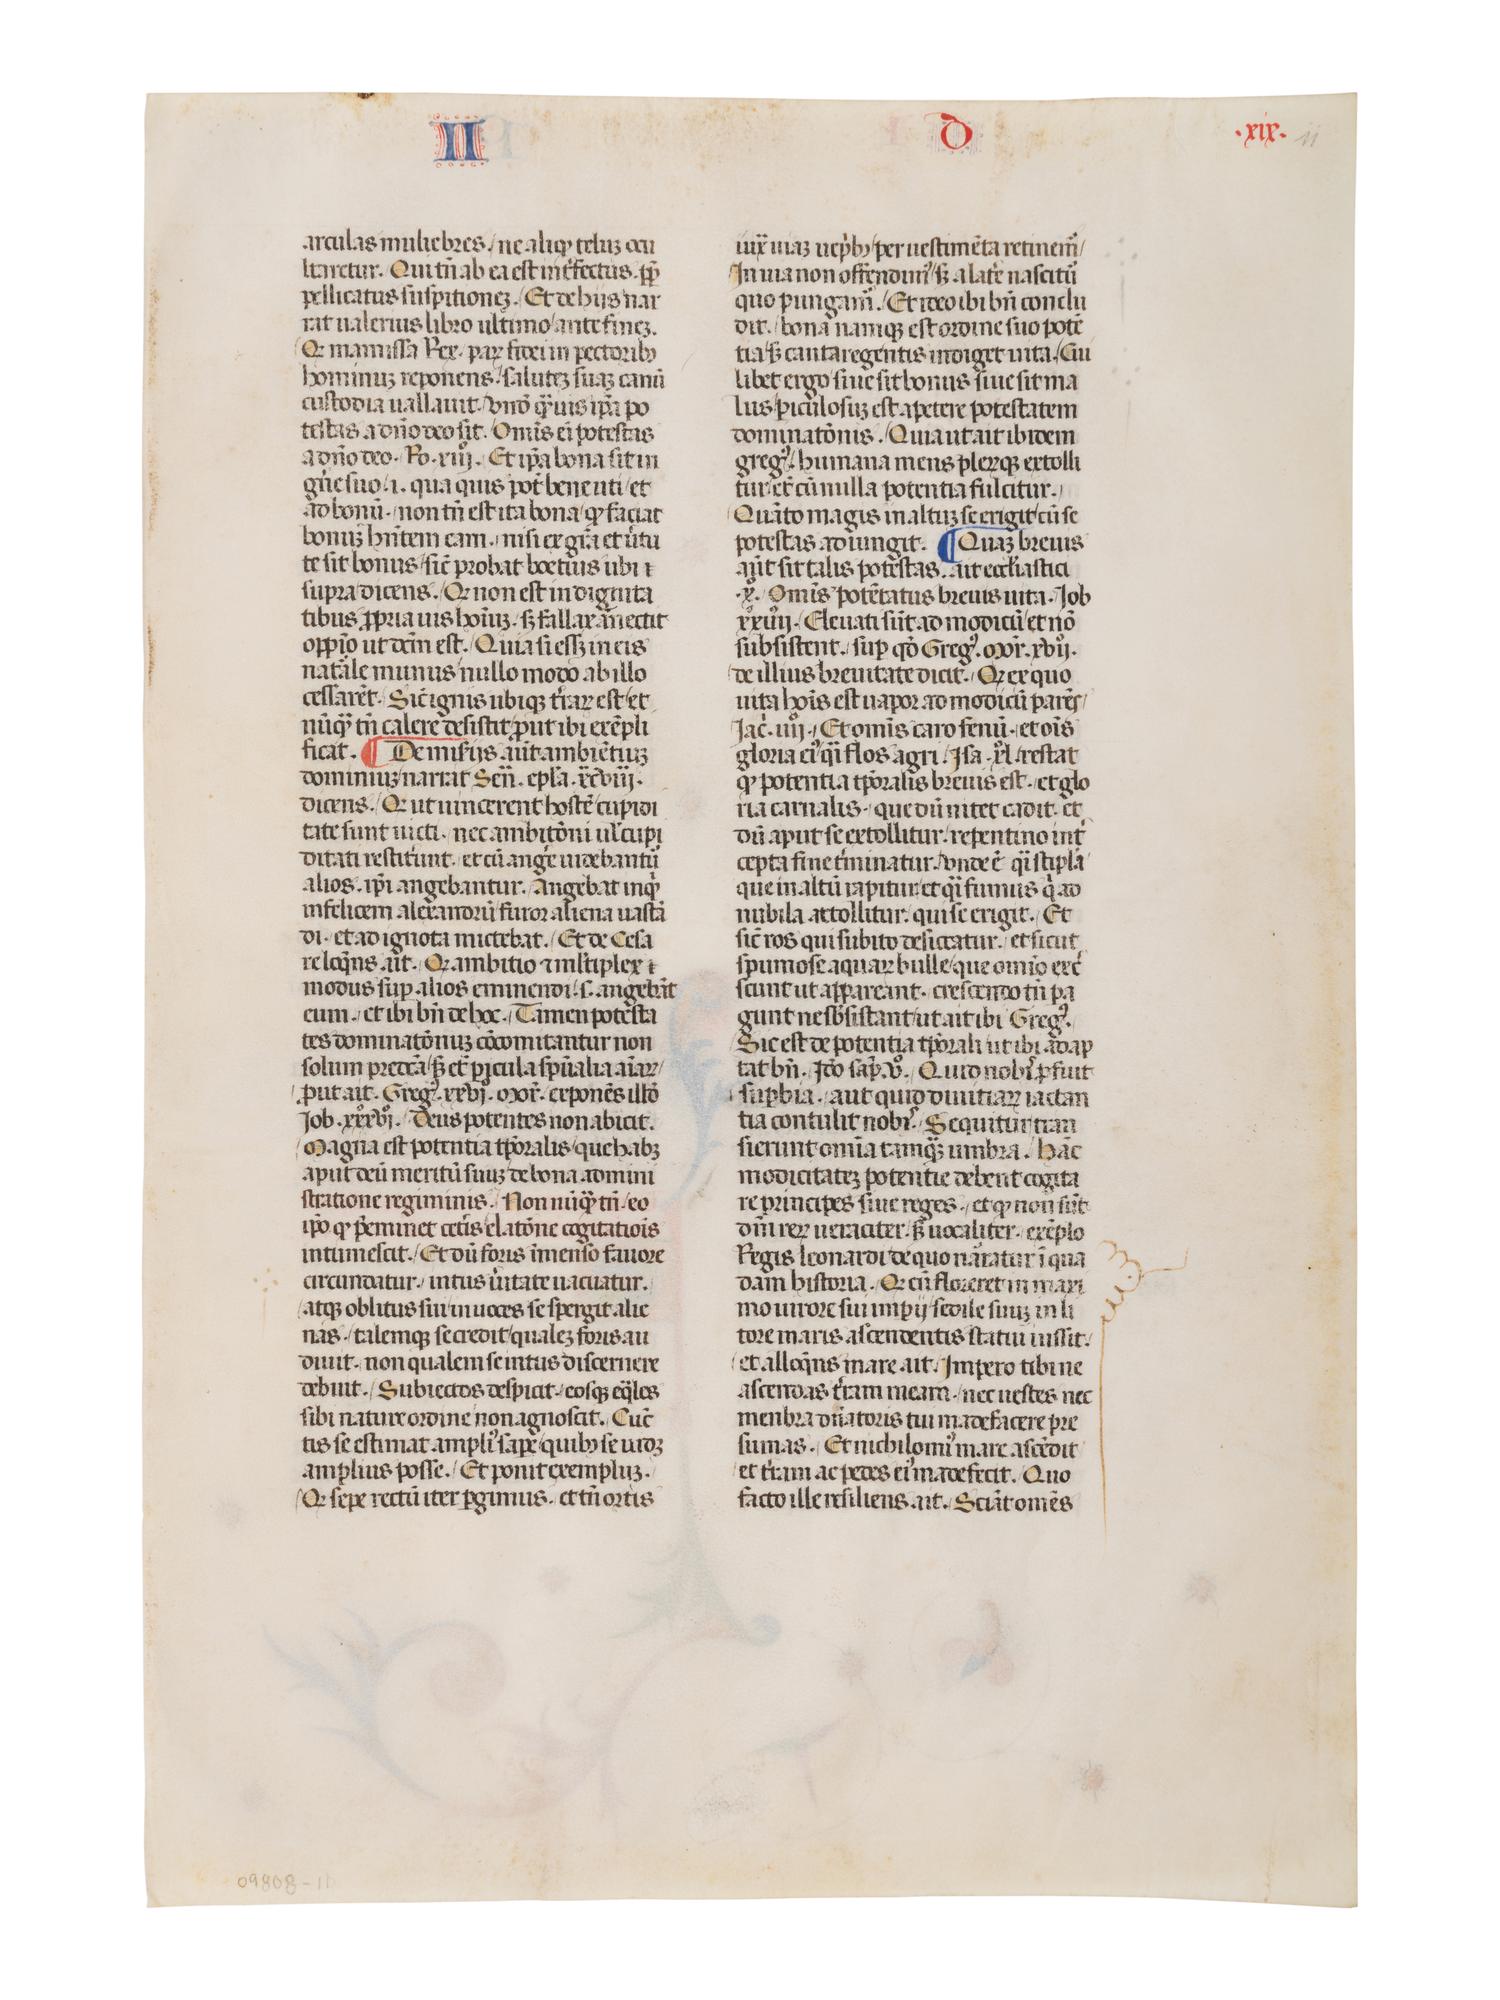 II D ·xix· 11
arculas muliebres. ne aliq̄ teluꝫ occu
ltaretur. Qui tn̄ ab ea est int̄fectus. ꝓꝑ
pellicatus suspitioneꝫ. Et de hijs nar
rat ualerius libro ultimo ante fineꝫ.
Rex. par fidei in pectoribꝫ
hominuꝫ reponens. saluteꝫ suaꝫ canū
custodia uallauit. ip̄a po
testas a dn̄o deo sit. Om̄is ei potestas
a dn̄o deo. Ro. xiij. Et ip̄a bona sit in
gn̄e suo .i. qua quis pot̄ bene uti et
ad bonū. non tn̄ est ita bona ꝙ faciat
bonuꝫ hn̄tem eam. nisi ex gr̄a et ūtu
te sit bonus sic̄ probat boetius ubi ɿ
supra dicens. Qꝛ non est in dignita
tibus ꝓpria uis boīuꝫ. fallax annectit
oppīo ut dem̄ est. Quia si essꝫ in eis
natāle munus nullo modo ab illo
cessaret̄. Sic̄ ignis ubique t̄raꝝ est et
nūq̄ꝫ tn̄ calere desistit put ibi exēpli
ficat. ¶ De misijs aūt ambientiuꝫ
dominiuꝫ narrat Sen̄. epl̄a .xcviij.
dicens. Qꝛ ut uincerent hostē cupidi
tate sunt uicti. nec ambitōni ul̄ cupi
ditati restitūnt. et cū angē uidebantū
alios. ip̄i angebantur. Angebat inq̄ꝫ
infelicem alexandrū furor aliena uastā
di. et ad ignota mictebat. Et de Cesa
re loq̄ns aīt. Qꝛ ambitio ɿ ml̄tiplex ɿ
modus sup alios eminendi .s. angebāt
eum. et ibi bn̄ de hoc. Tamen potesta
tes dominatōnuꝫ cōcomitantur non
solum predcā et̄ picula spūalia aīaꝝ
put ait. Greg'. xxvj. mor̄. exponēs illd̄
Job .xxxvj. Deus potentes non abicit.
Magna est potentia tp̄oralis que habꝫ
aput deū meritū suuꝫ de bona admini
stratione regiminis. Non nūq̄ꝫ tn̄ eo
ip̄o ꝙ p̄eminet cet̄is elatōne cogitatiōis
intumescit. Et dū foris īmenso fauore
circundatur. intus ūitate uacuatur.
atqꝫ oblitus sui in uoces se spergit alie
nas. talemqꝫ se credit qualeꝫ foris au
diuit. non qualem se intus discernere
debuit. Subiectos despicit. eosqꝫ eq̄les
sibi nature ordine non agnoscit. Cūc
tis se estimat ampli' sape quibꝫ se uidꝫ
amplius posse. Et ponit exempluꝫ.
Qꝛ sepe rectū iter ꝑgimus. et tn̄ ortis
iuxͣ uiaꝫ uepribꝫ per uestimēta retinem̄
In uia non offendim' a latē nascitū
quo pungam̄. Et ideo ibi bn̄ conclu
dit. bona namqꝫ est ordine suo potē
tia cauta regentis indiget uita. Cui
libet ergo siue sit bonus siue sit ma
lus piculosuꝫ est apetere potestatem
dominatōnis. Quia ut ait ibidem
greg'. humana mens plerqꝫ extolli
tur et̄ cū nulla potentia fulcitur.
Quāto magis in altuꝫ se erigit cū se
potestas adiungit. ¶ Quaꝫ breuis
aūt sit talis potestas. ait eccl̄iastici
.x. Om̄is potētatus breuis uita. Job
xxiiij. Eleuati sūt ad modicū et nō
subsistent. sup qd̄ Greg'. mor̄. xvij.
de illius breuitate dicit. Qꝛ ex quo
uita hoīs est uapor ad modicū parēs
Jac̄. iiij. Et om̄is caro fenū. et oīs
gloria ei' q̄i flos agri. Isa .xl. restat
ꝙ potentia tp̄oralis breuis est. et glo
ria carnalis. que dū nitet cadit. et
dū aput se extollitur. repentino int̄
cepta fine t̄minatur. vnde ē q̄i stipla
que in altū rapitur et q̄i fumus q̄ ad
nubila attollitur. qui se erigit. Et
sic̄ ros qui subito desiccatur. et sicut
spumose aquaꝝ bulle que om̄io exc̄
scunt ut appareant. crescendo tn̄ pa
gunt ne sb̄sistant ut ait ibi Greg'.
Sic est de potentia tp̄orali ut ibi adap
tat bn̄. Id̄o sap̄. v. Quid nobis ꝓfuit
supbia. aut quid diuitiaꝝ iactan
tia contulit nobis. Sequitur tran
sierunt omīa tamq̄ꝫ umbra. Hāc
modicitateꝫ potentie debent cogita
re principes siue reges. et ꝙ non sūt
dn̄i reꝝ ueraciter. uocaliter. exēplo
Regis leonardi de quo nāratur ī qua
dam historia. Qꝛ cū floreret in maxi
mo uirore sui impij sedile suuꝫ in li
tore maris ascendentis statui iussit.
et alloq̄ns mare ait. Impero tibi ne
ascendas t̄ram meam. nec uestes nec
menbra dn̄atoris tui madefacere pre
sumas. Et nichilomi' mare ascēdit
et t̄ram ac pedes ei' madefecit. Quo
facto ille resiliens ait. Sciāt omēs
09808-11